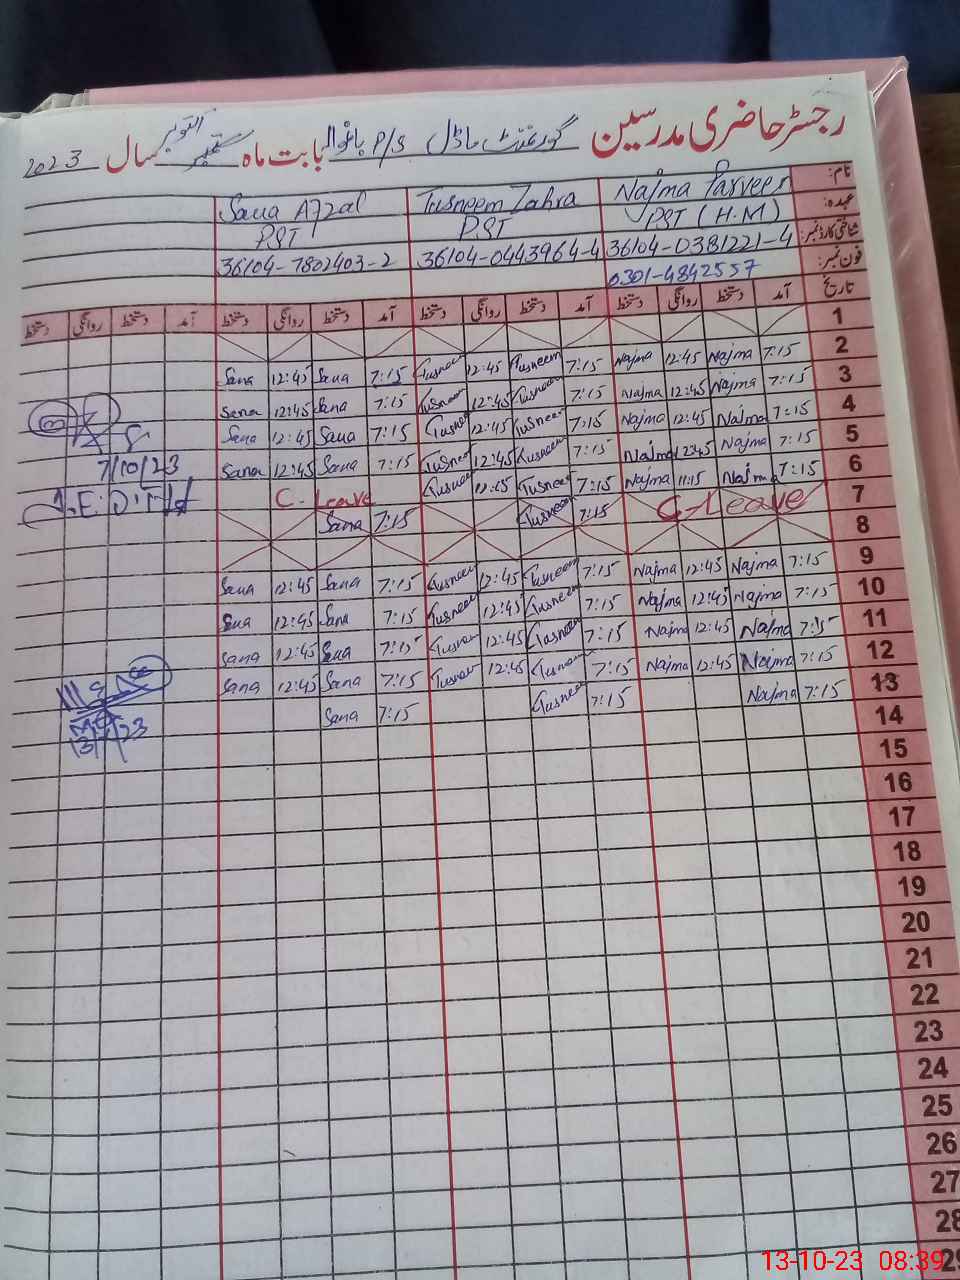 رجسٹر حاضری مدرسین گورنمنٹ ماڈل P/S باغوالہ بابت ماہ ستمبر اکتوبر سال 2023
نام: Najma Parveen Tusneem Zahra Sana Afzal
عہدہ: PST (H.M) PST PST
شناختی کارڈ نمبر: 36104-0381221-4 36104-0443964-4 36104-7802403-2
فون نمبر: 0301-4842557
تاریخ آمد دستخط روانگی دستخط آمد دستخط روانگی دستخط آمد دستخط روانگی دستخط آمد دستخط روانگی دستخط
1
Sana 12:45 Sana 7:15 Tusneem 12:45 Tusneem 7:15 Najma 12:45 Najma 7:15 2
Sana 12:45 Sana 7:15 Tusneem 12:45 Tusneem 7:15 Najma 12:45 Najma 7:15 3
Sana 12:45 Sana 7:15 Tusneem 12:45 Tusneem 7:15 Najma 12:45 Najma 7:15 4
Sana 12:45 Sana 7:15 Tusneem 12:45 Tusneem 7:15 Najma 12:45 Najma 7:15 5
7/10/23
C-Leave Tusneem 12:45 Tusneem 7:15 Najma 11:15 Najma 7:15 6
Sana 7:15 Tusneem 7:15 C-Leave 7
8
Sana 12:45 Sana 7:15 Tusneem 12:45 Tusneem 7:15 Najma 12:45 Najma 7:15 9
Sana 12:45 Sana 7:15 Tusneem 12:45 Tusneem 7:15 Najma 12:45 Najma 7:15 10
Sana 12:45 Sana 7:15 Tusneem 12:45 Tusneem 7:15 Najma 12:45 Najma 7:15 11
Sana 12:45 Sana 7:15 Tusneem 12:45 Tusneem 7:15 Najma 12:45 Najma 7:15 12
Sana 7:15 Tusneem 7:15 Najma 7:15 13
14
15
16
17
18
19
20
21
22
23
24
25
26
27
28
29
13-10-23 08:39